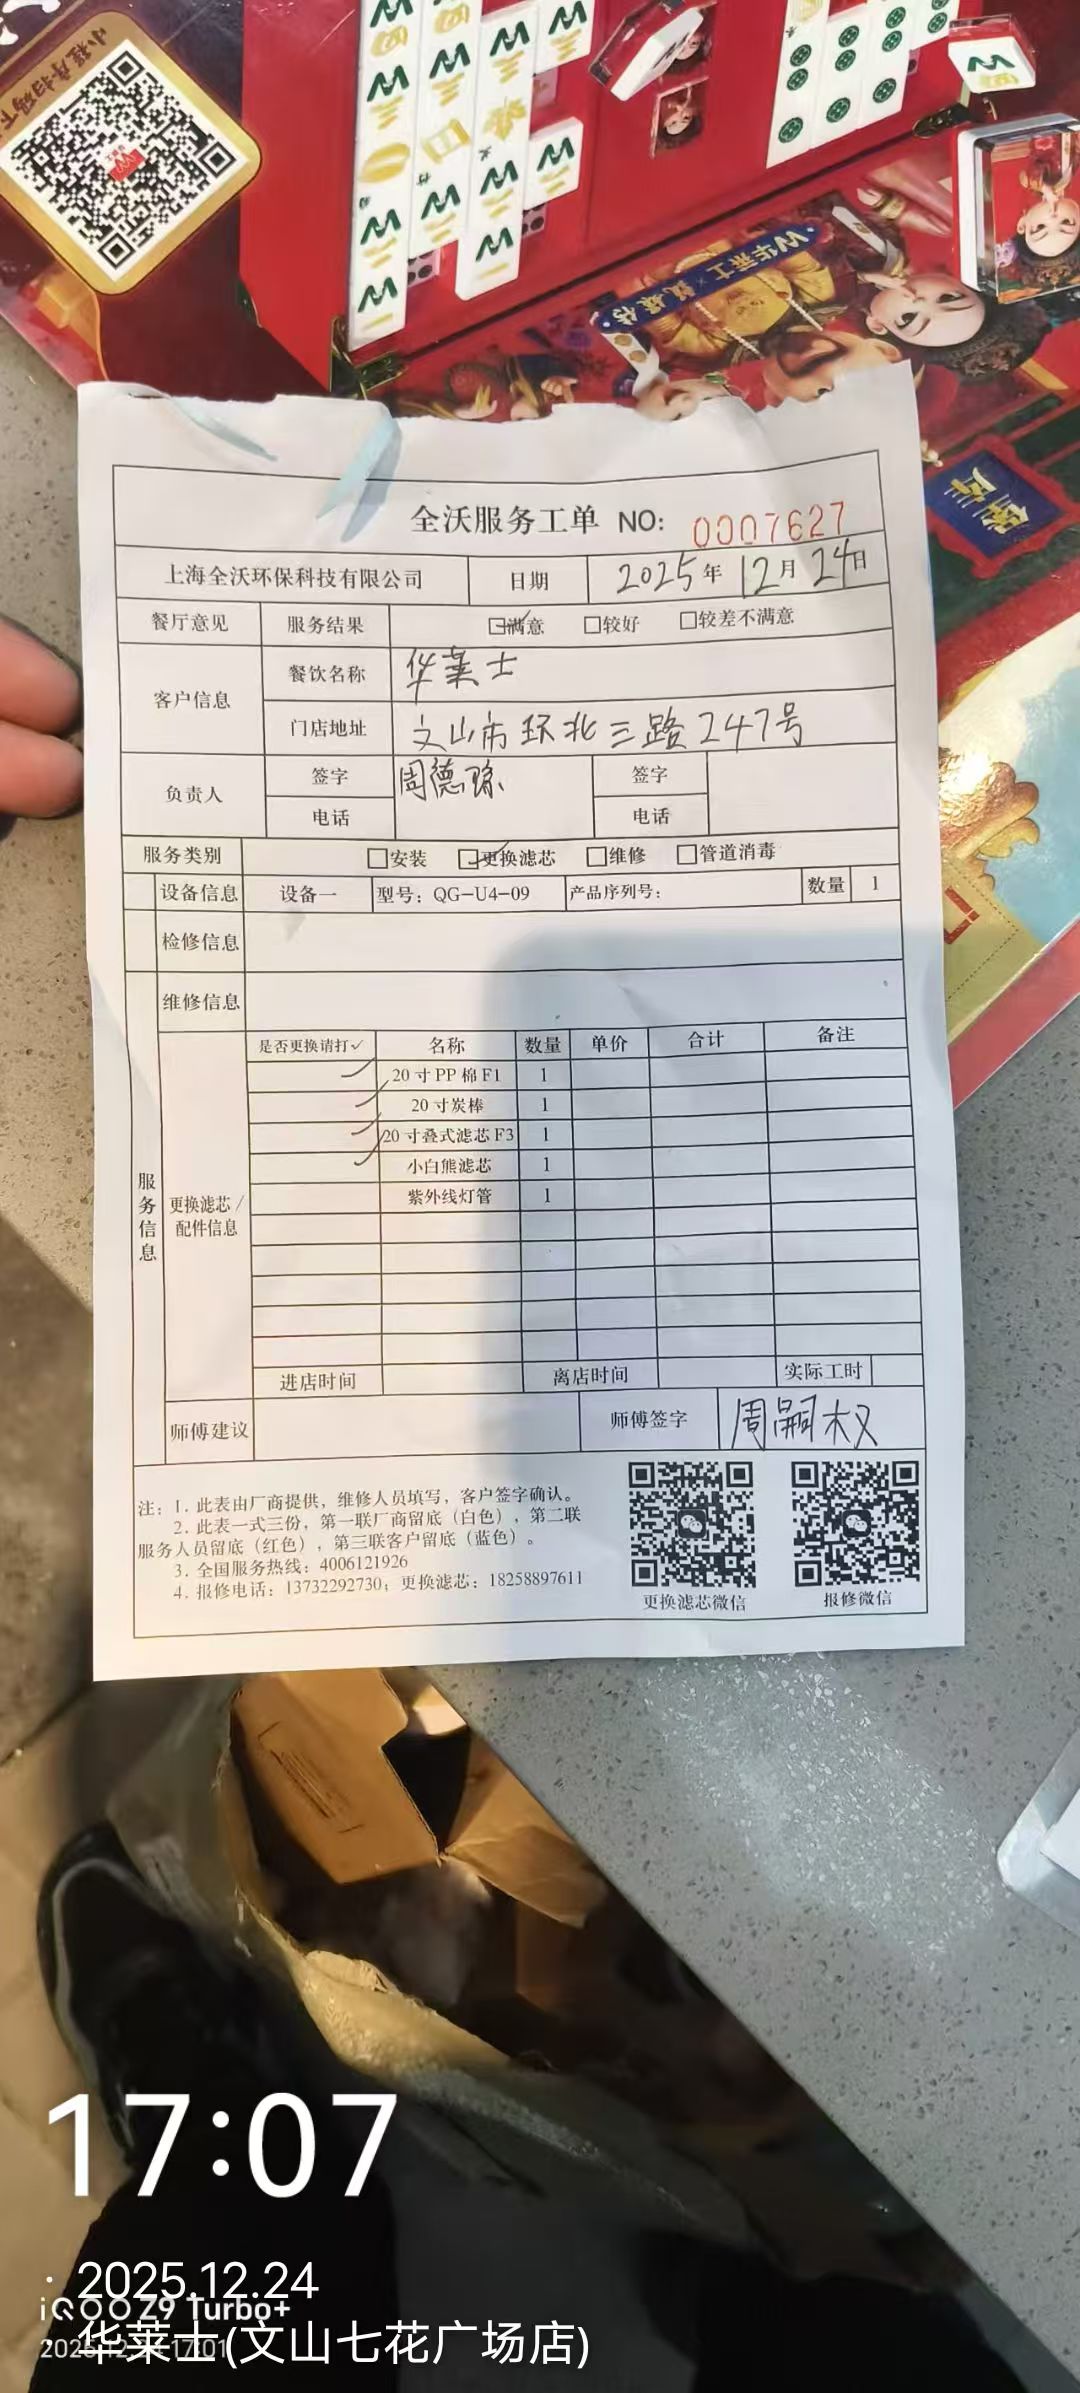 全沃服务工单 NO: 0007627
上海全沃环保科技有限公司 日期 2025年12月24日
餐厅意见 服务结果 满意 较好 较差不满意
客户信息 餐饮名称 华莱士
门店地址 文山市环北三路247号
负责人 签字 周德琼 签字
电话 电话
服务类别 安装 更换滤芯 维修 管道消毒
设备信息 设备一 型号：QG-U4-09 产品序列号： 数量 1
检修信息
维修信息
服务信息
更换滤芯/配件信息
是否更换请打✓ 名称 数量 单价 合计 备注
✓ 20寸PP棉F1 1
✓ 20寸炭棒 1
✓ 20寸叠式滤芯F3 1
✓ 小白熊滤芯 1
紫外线灯管 1
进店时间 离店时间 实际工时
师傅建议 师傅签字 周嗣权
注：1. 此表由厂商提供，维修人员填写，客户签字确认。
2. 此表一式三份，第一联厂商留底（白色），第二联
服务人员留底（红色），第三联客户留底（蓝色）。
3. 全国服务热线：4006121926
4. 报修电话：13732292730；更换滤芯：18258897611
更换滤芯微信 报修微信
17:07
2025.12.24
iQOO Z9 Turbo+
华莱士(文山七花广场店)